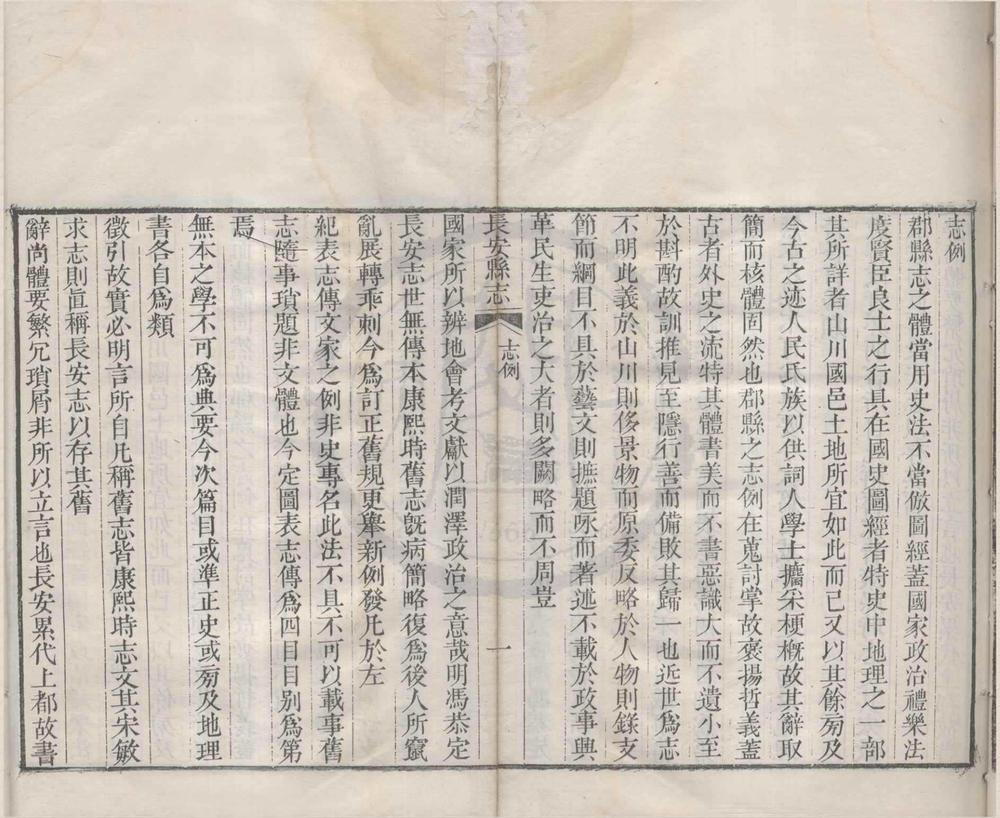 志例
郡縣志之體當用史法不當倣圖經蓋國家政治禮樂法
度賢臣良士之行具在國史圖經者特史中地理之一部
其所詳者山川國邑土地所宜如此而已又以其餘㫄及
今古之迹人民氏族以供詞人學士攟采梗槪故其辭取
簡而核體固然也郡縣之志例在蒐討掌故褒揚哲義蓋
古者外史之流特其體書美而不書惡識大而不遺小至
於斟酌故訓推見至隱行善而備敗其歸一也近世爲志
不明此義於山川則侈景物而原委反略於人物則錄支
節而綱目不具於藝文則摭題咏而著述不載於政事興
革民生吏治之大者則多闕略而不周豈
長安縣志
志例
一
國家所以辨地會考文獻以潤澤政治之意哉明馮恭定
長安志世無傳本康熙時舊志旣病簡略復爲後人所竄
亂展轉乖剌今爲訂正舊規更舉新例發凡於左
紀表志傳文家之例非史專名此法不具不可以載事舊
志隨事瑣題非文體也今定圖表志傳爲四目目別爲第
焉
無本之學不可爲典要今次篇目或準正史或㫄及地理
書各自爲類
徵引故實必明言所自凡稱舊志皆康熙時志文其宋敏
求志則直稱長安志以存其舊
辭尚體要繁冗瑣屑非所以立言也長安累代上都故書